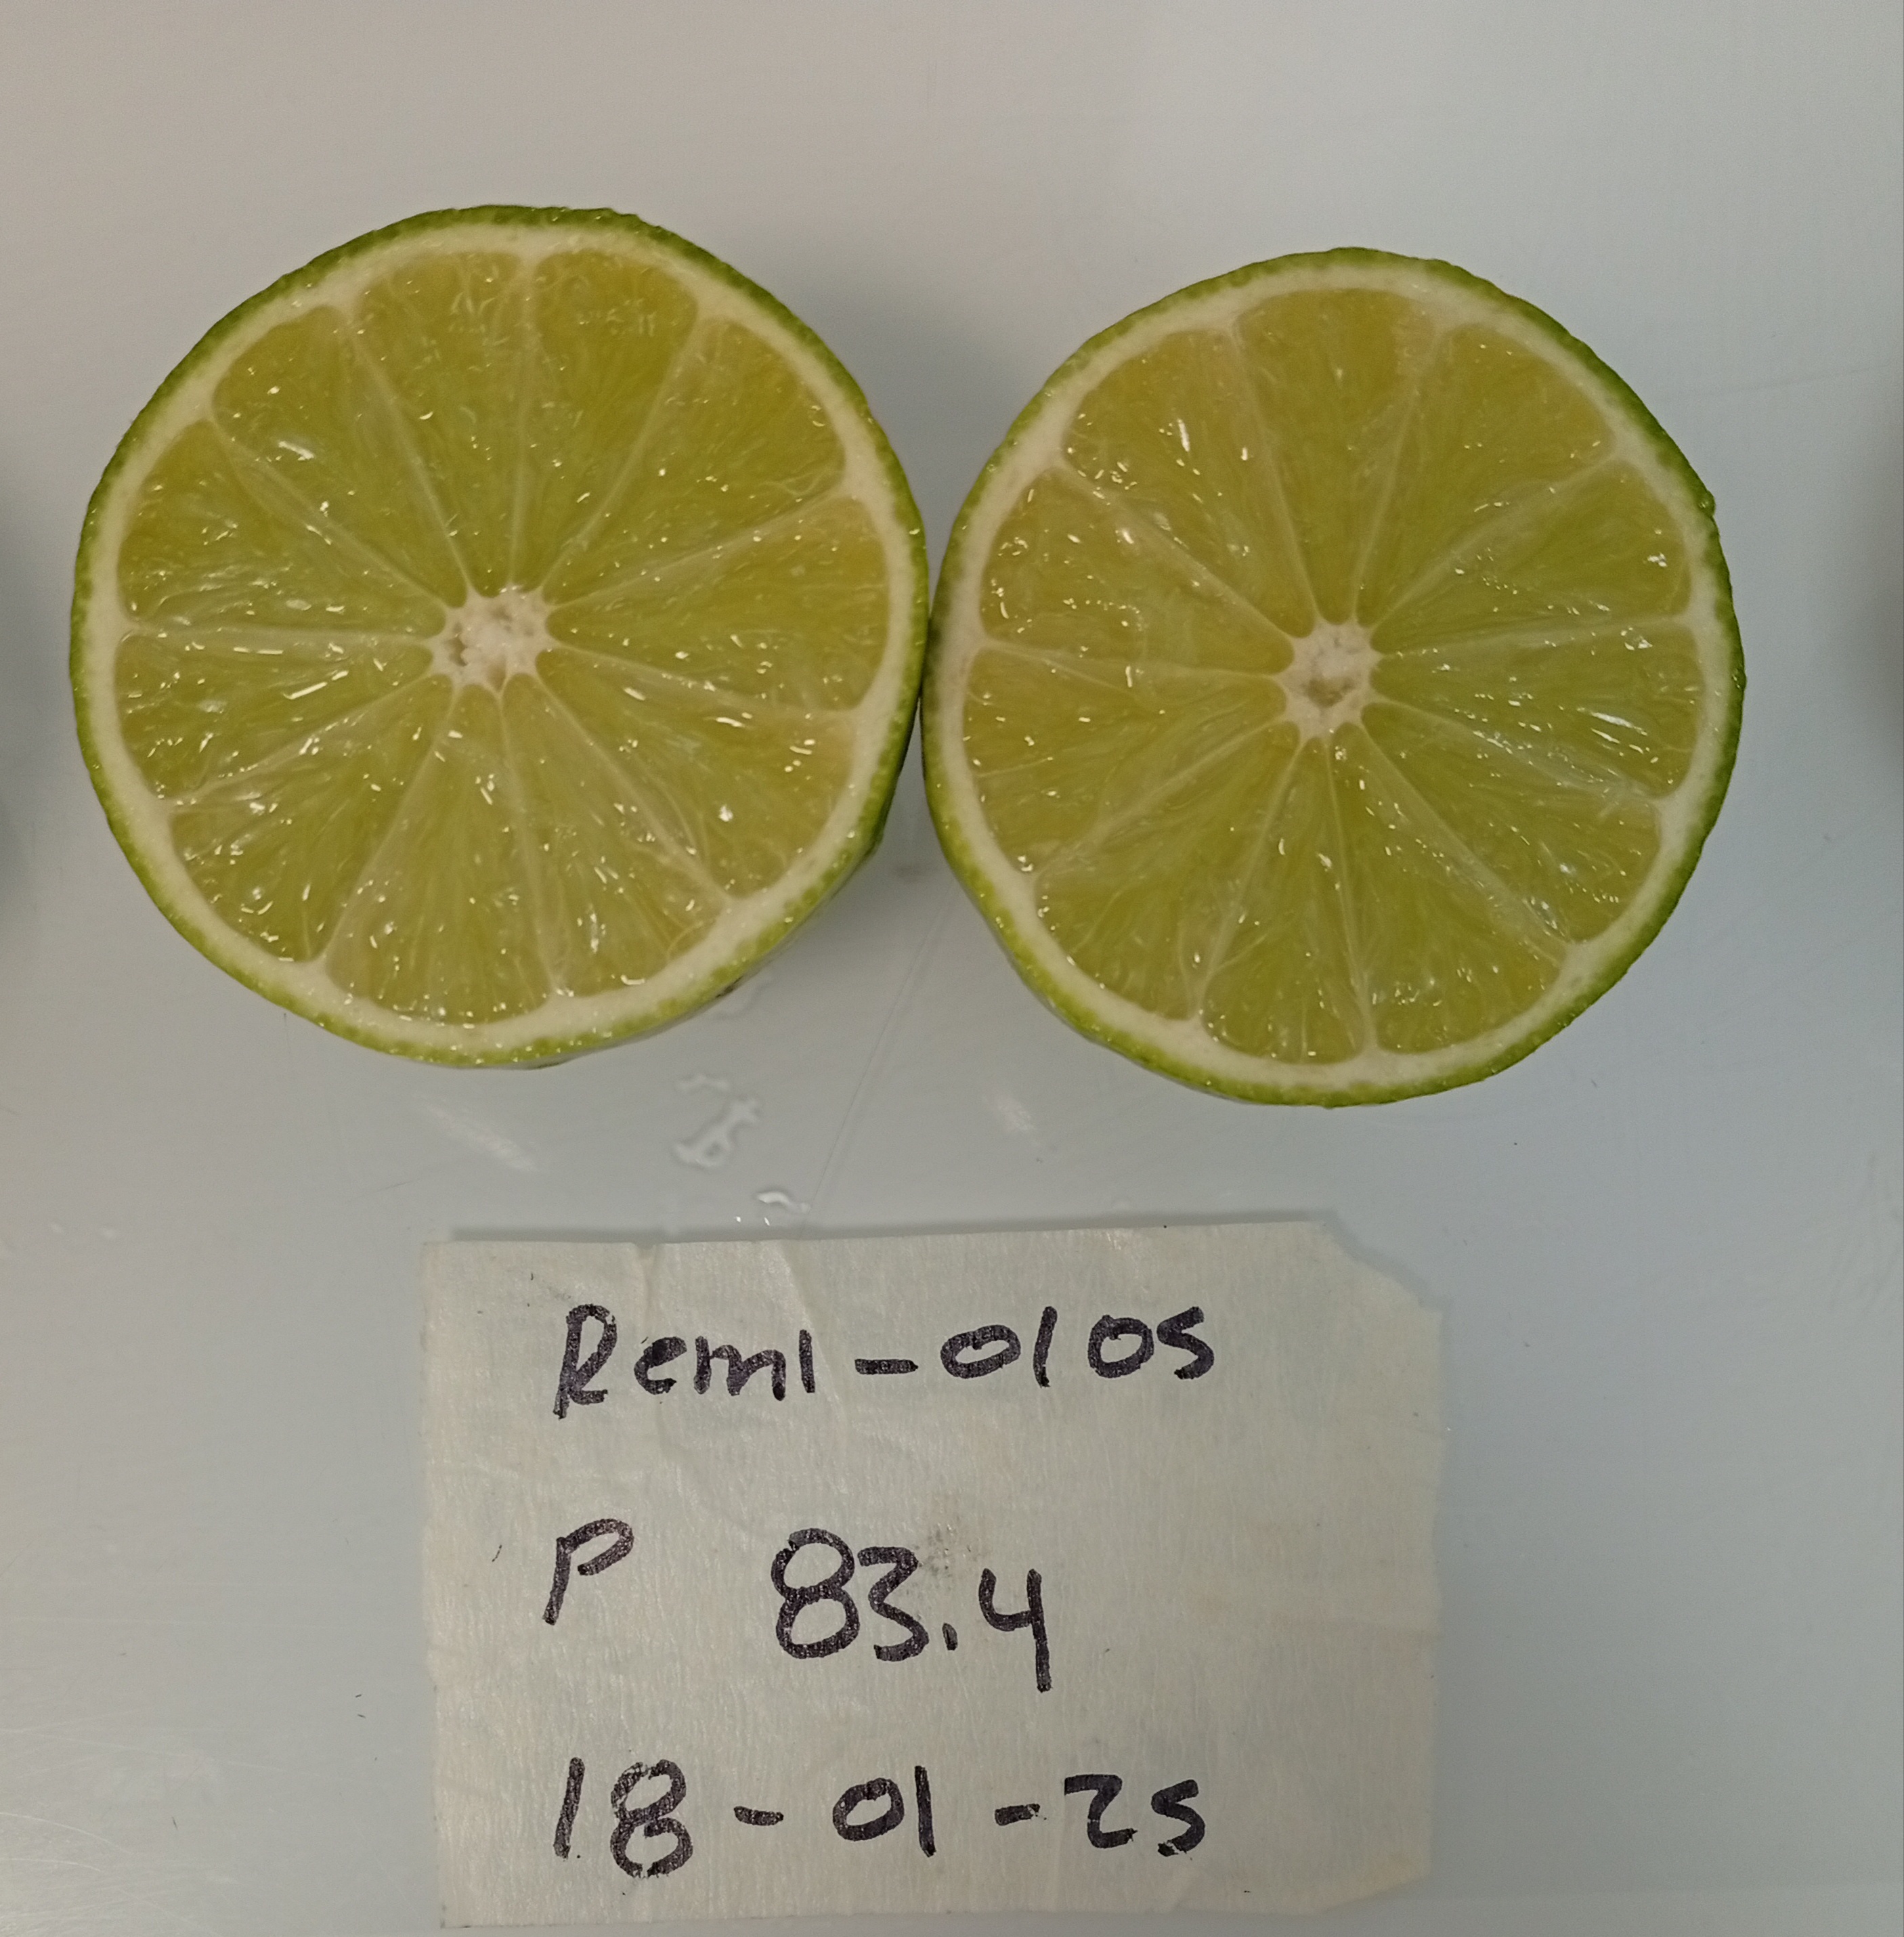 Reml-0105
P 83.4
18-01-25